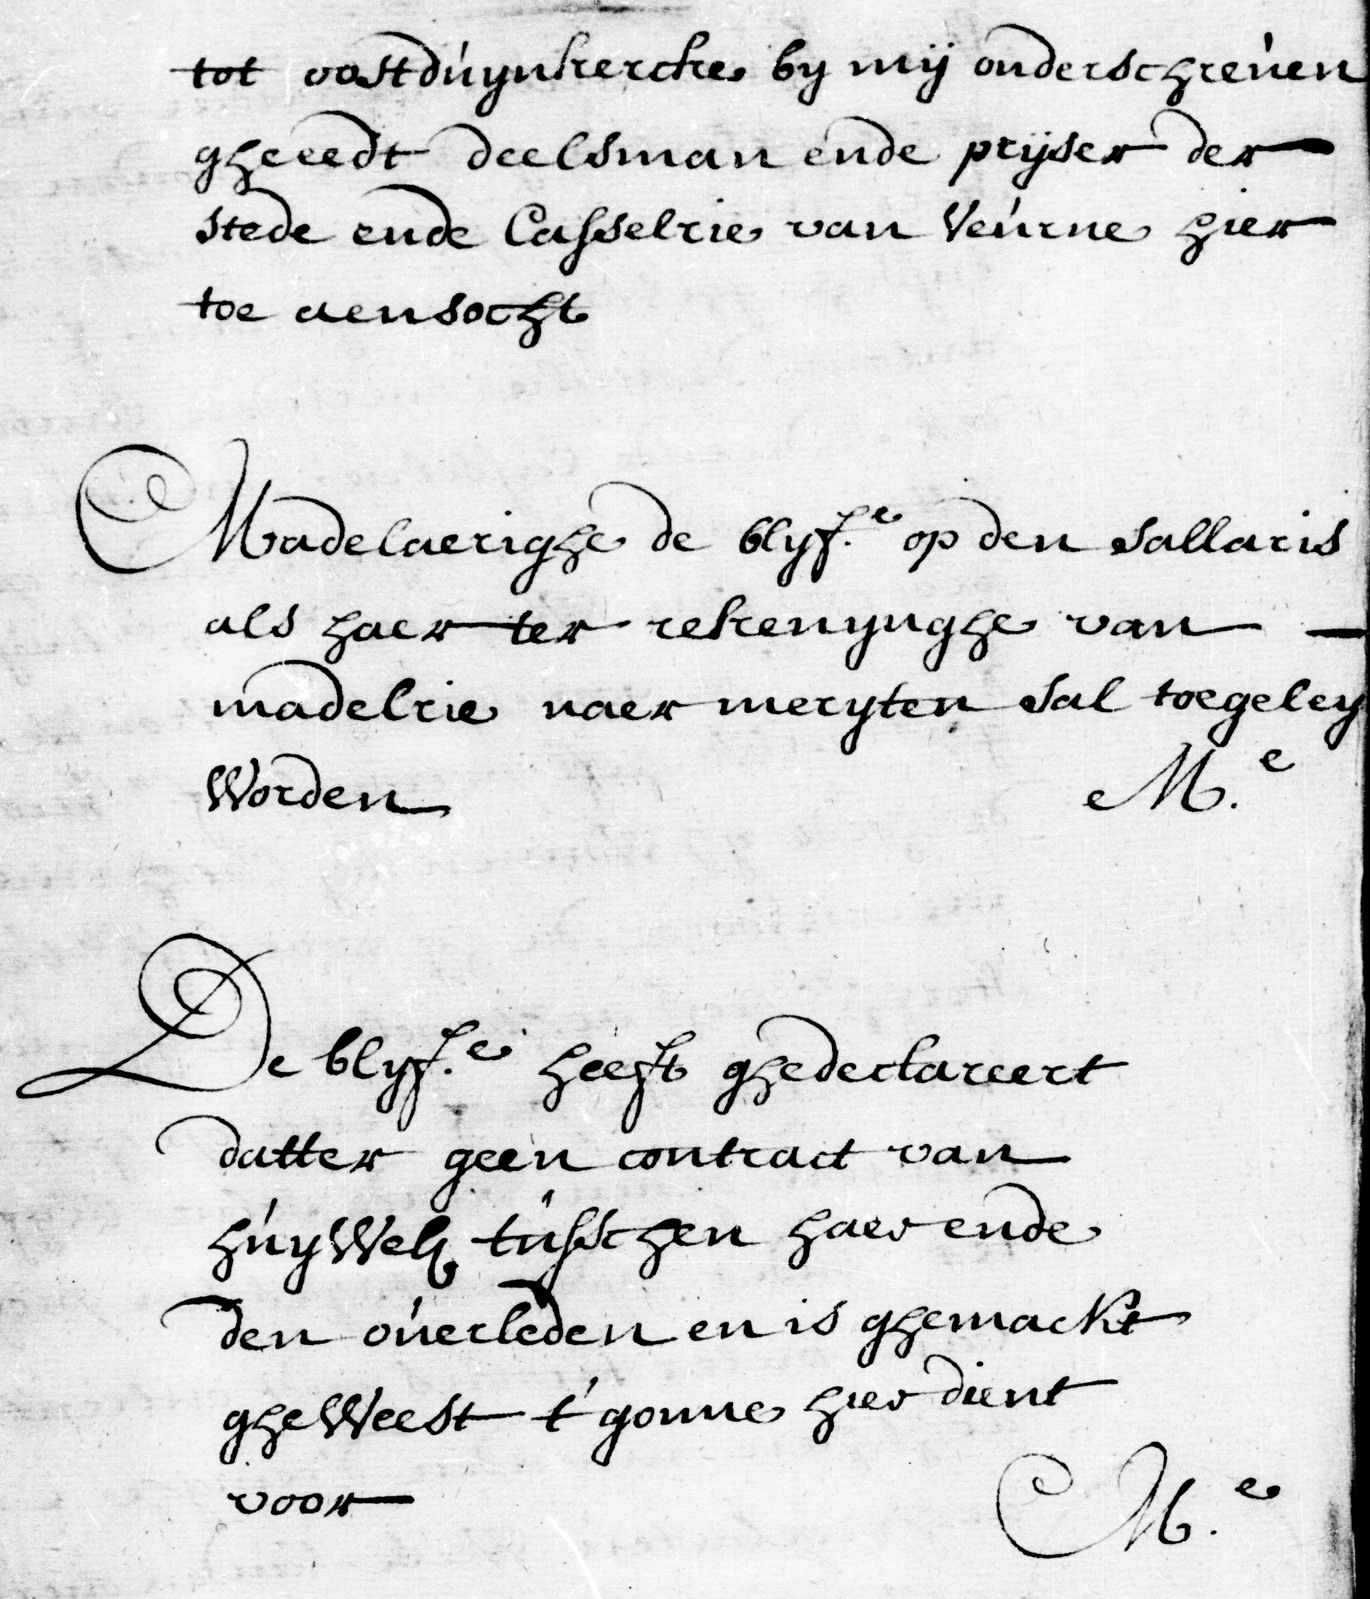 tot oostduijnkercke by mij onderschreuen
gheeedt deelsman ende prijser der
stede ende Casselrie van Veurne hier
toe aensocht
Madelaerighe de blyf.e op den sallaris
als haer ter rekenijnghe van
madelrie naer meryten sal toegeley
Worden M.e
De blyf.e heeft ghedeclareert
datter geen contract van
huyWelq tusschen haer ende
den ouerleden en is ghemackt
gheWeest t'gonne hier dient
voor M.e